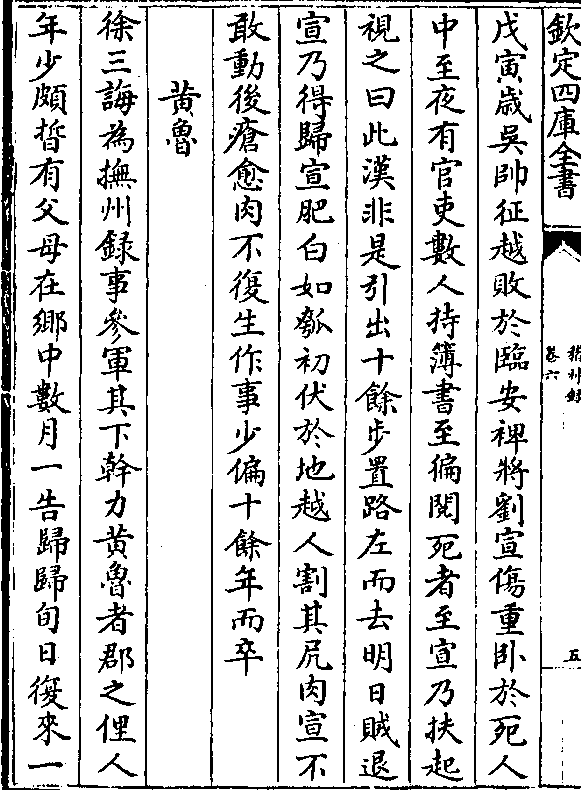 欽定四庫全書
稽神錄
卷六
五
戊寅歲吳帥征越敗於臨安裨將劉宣傷重卧於死人
中至夜有官吏數人持簿書至徧閱死者至宣乃扶起
視之曰此漢非是引出十餘步置路左而去明日賊退
宣乃得歸宣肥白如瓠初伏於地越人割其尻肉宣不
敢動後瘡愈肉不復生作事少偏十餘年而卒
黃魯
徐三誨為撫州録事參軍其下幹力黃魯者郡之俚人
年少頗晳有父母在鄉中數月一告歸歸旬日復來一